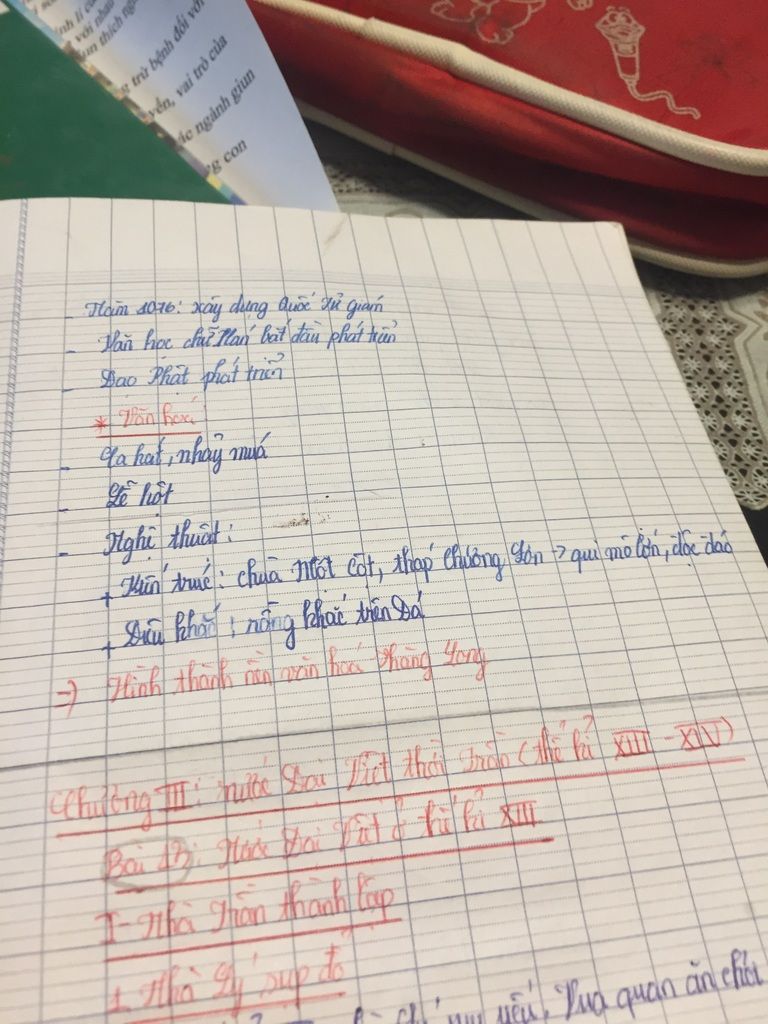 nh lí c
với nhau
un thích ng
g trừ bệnh đối với
yễn, vai trò của
ác ngành giun
g con
- Năm 1076: xây dựng Quốc tử giám
- Văn học chữ Hán bắt đầu phát triển
- Đạo Phật phát triển
* Văn hoá
- Ca hát, nhảy múa
- Lễ hội
- Nghệ thuật:
+ Kiến trúc: chùa Một Cột, tháp Chương Sơn -> qui mô lớn, độc đáo
+ Điêu khắc: nông khắc trên Đá
=> Hình thành nền văn hoá Thăng Long
Chương III: nước Đại Việt thời Trần (thế kỉ XIII - XIV)
Bài 13: Nước Đại Việt ở thế kỉ XIII
I- Nhà Trần thành lập
1. Nhà Lý sụp đổ
yếu, Vua quan ăn chơi